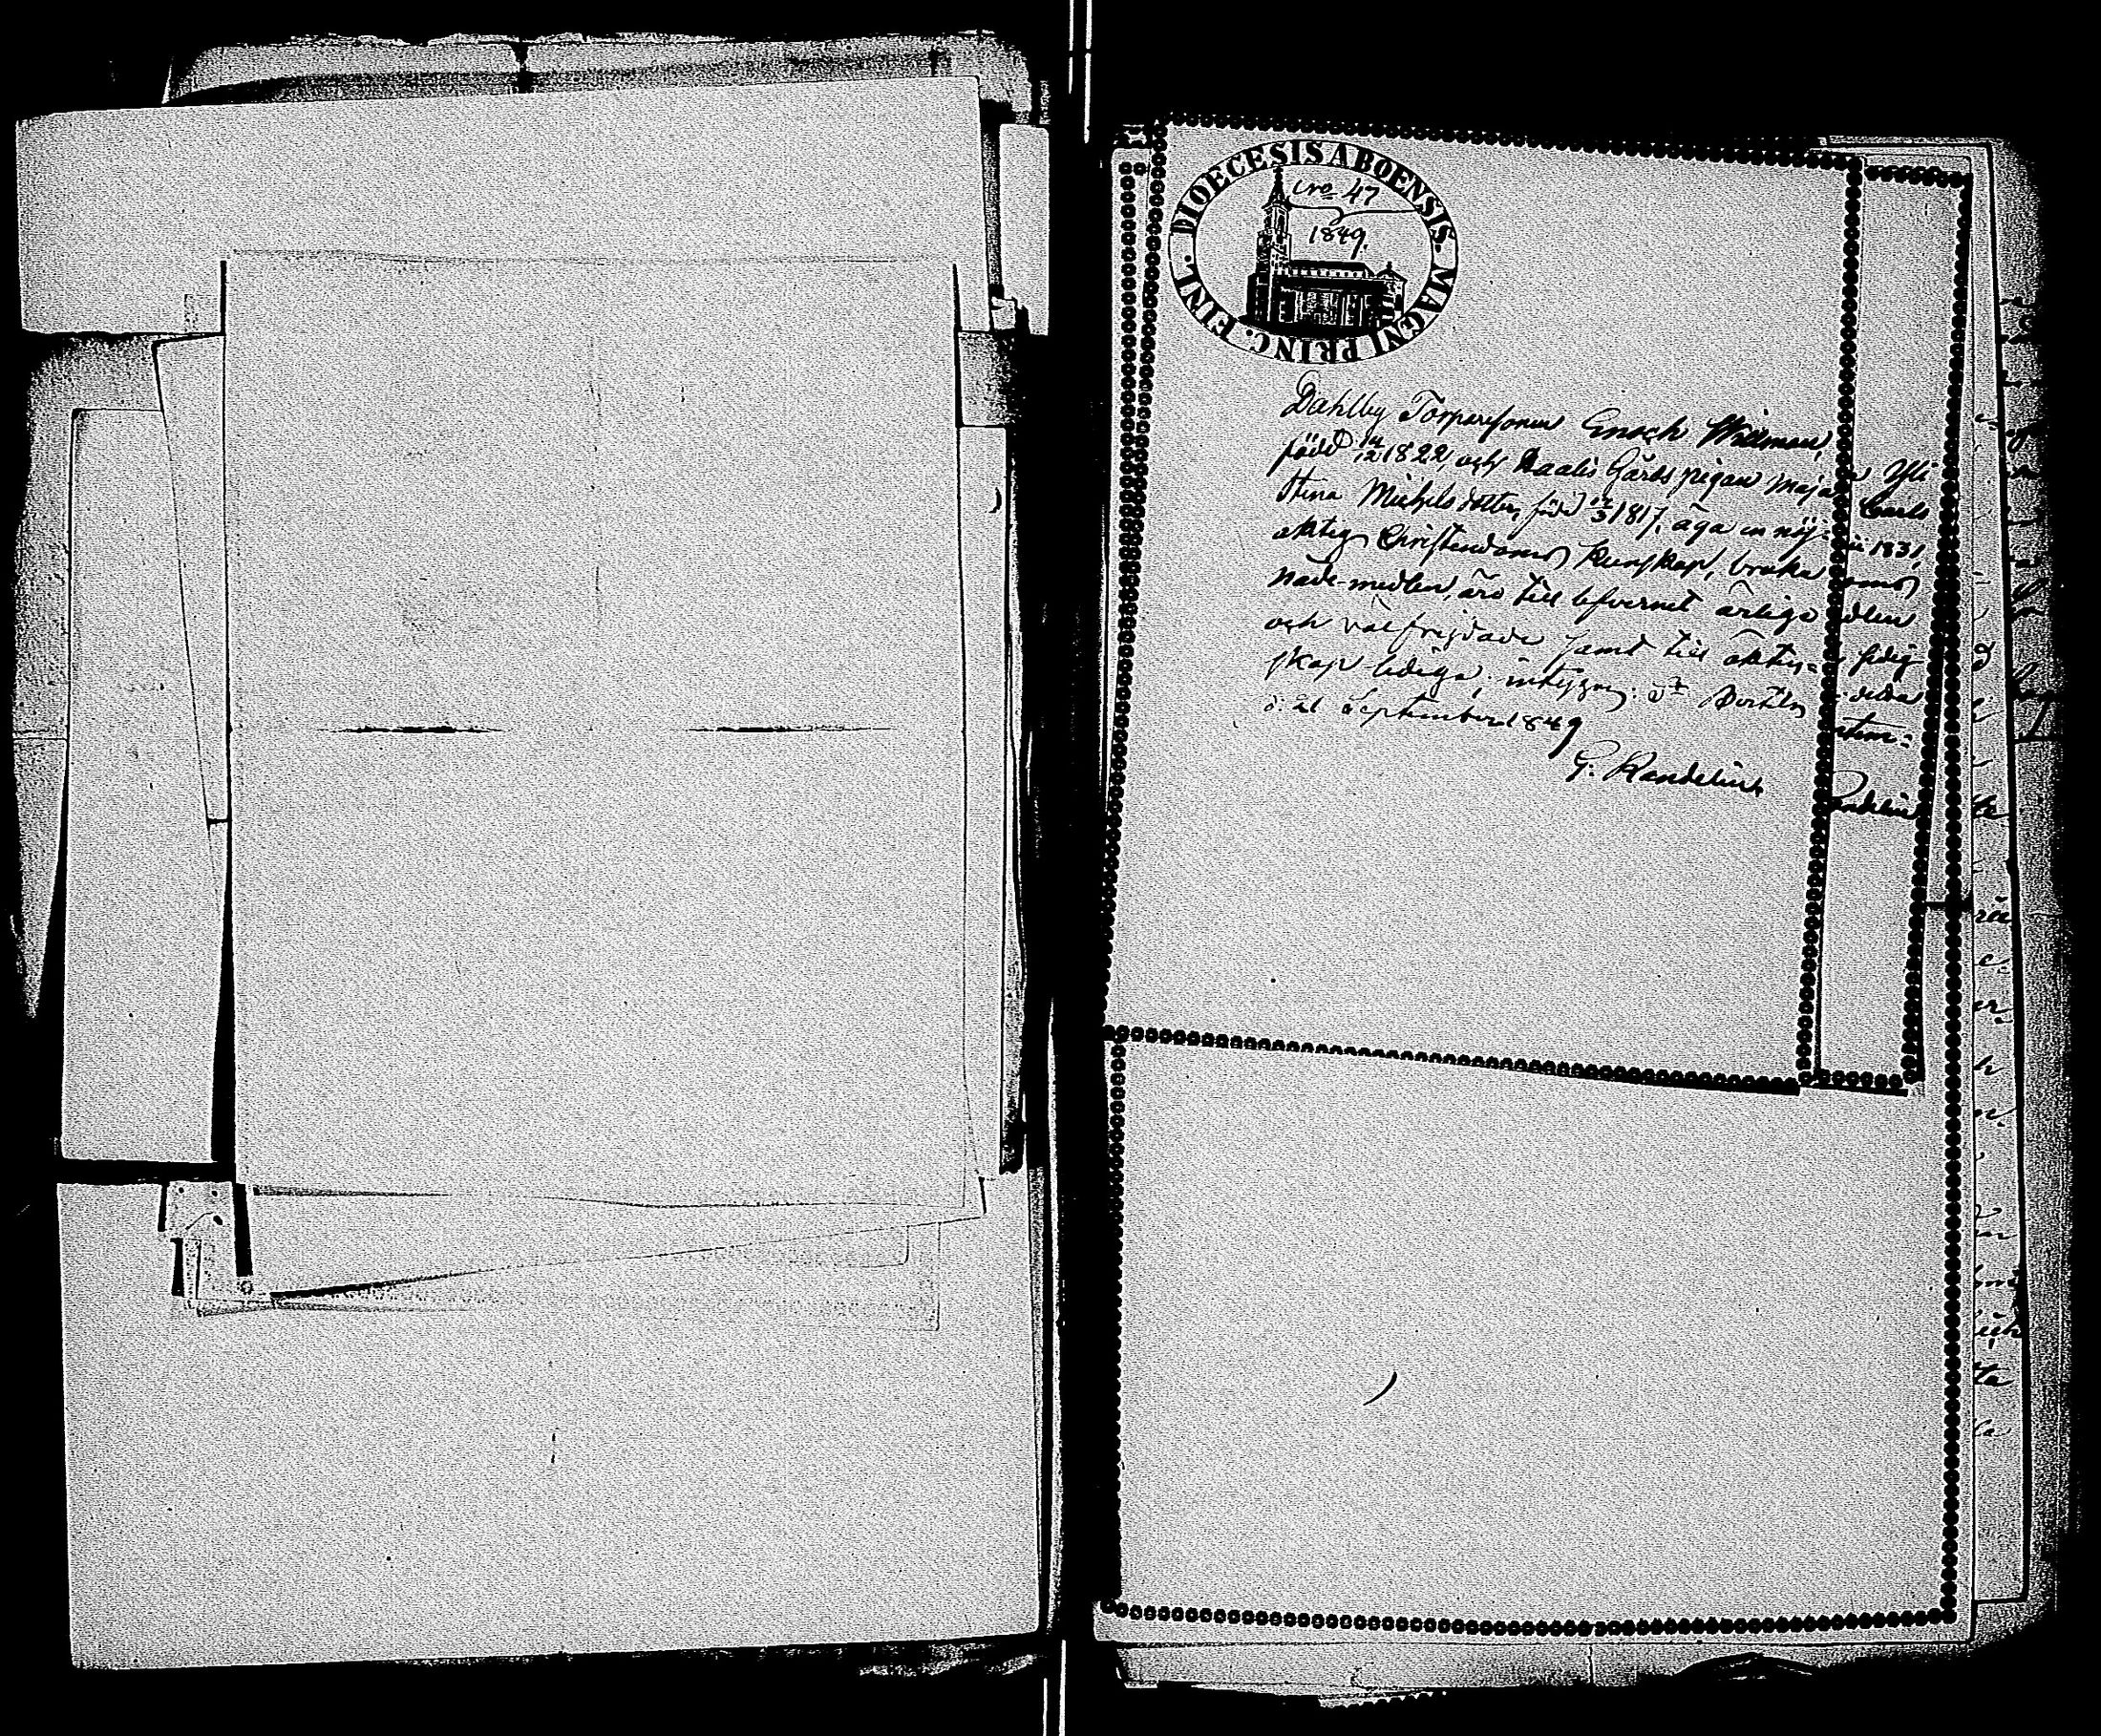 DIOECESIS ABOENSIS MAGNI PRINC. FINL.
No 47
1849.
Dahlby Torparesonen Enoch Willman,
född 14/12 1822, och Kaalis Gårds pigan Maja
Stina Michelsdotter, född 12/3 1817, äga en nöj-
aktig Christendoms kunskap, bruka
nåde-medlen, äro till lefvernet ärliga
och välfrejdade samt till äkten-
skap lediga; intygar.
d. 21 September 1849
G. Randelius
Yli
Carls
1831,
oms
dlen
ledig
delas
ntem:
andelius